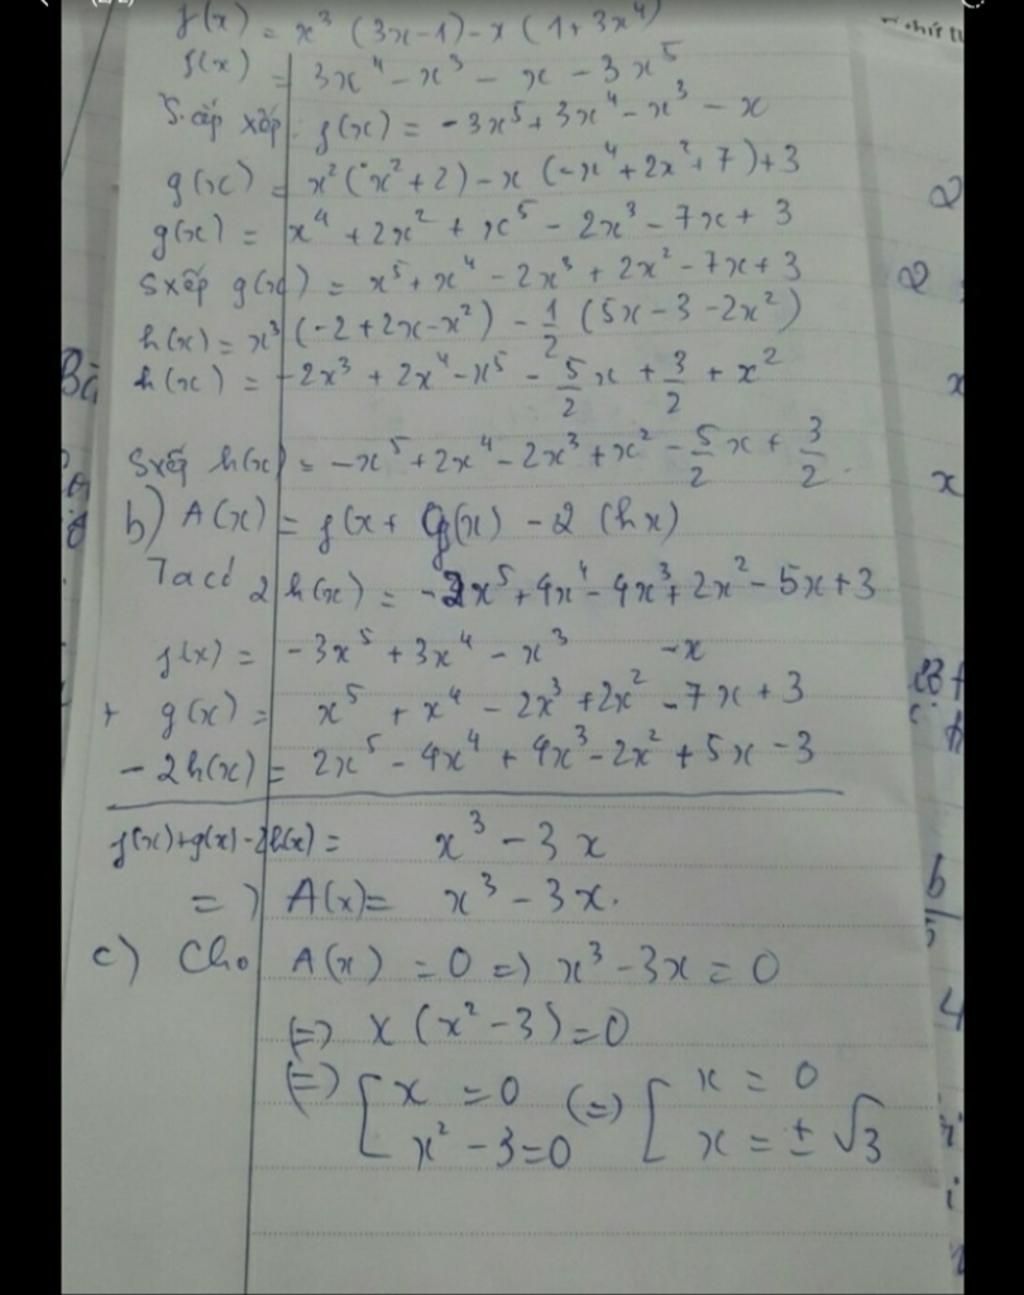 f(x) = x³ (3x-1) - x (1+3x⁴)
f(x) = 3x⁴ - x³ - x - 3x⁵
S. cấp xếp f(x) = -3x⁵ + 3x⁴ - x³ - x
g(x) = x² (x²+2) - x (-x⁴ + 2x² + 7) + 3
g(x) = x⁴ + 2x² + x⁵ - 2x³ - 7x + 3
Sxếp g(x) = x⁵ + x⁴ - 2x³ + 2x² - 7x + 3
h(x) = x³ (-2 + 2x - x²) - 1/2 (5x - 3 - 2x²)
h(x) = -2x³ + 2x⁴ - x⁵ - 5/2 x + 3/2 + x²
Sxếp h(x) = -x⁵ + 2x⁴ - 2x³ + x² - 5/2 x + 3/2.
b) A(x) = f(x + g(x) - 2 (hx)
Ta có 2h(x) = -2x⁵ + 4x⁴ - 4x³ + 2x² - 5x + 3
f(x) = -3x⁵ + 3x⁴ - x³ - x
+ g(x) = x⁵ + x⁴ - 2x³ + 2x² - 7x + 3
- 2h(x) = 2x⁵ - 4x⁴ + 4x³ - 2x² + 5x - 3
f(x) + g(x) - 2h(x) = x³ - 3x
=> A(x) = x³ - 3x.
c) Cho A(x) = 0 => x³ - 3x = 0
(=) x (x² - 3) = 0
(=) [ x = 0 (=) [ x = 0
x² - 3 = 0 x = ± √3